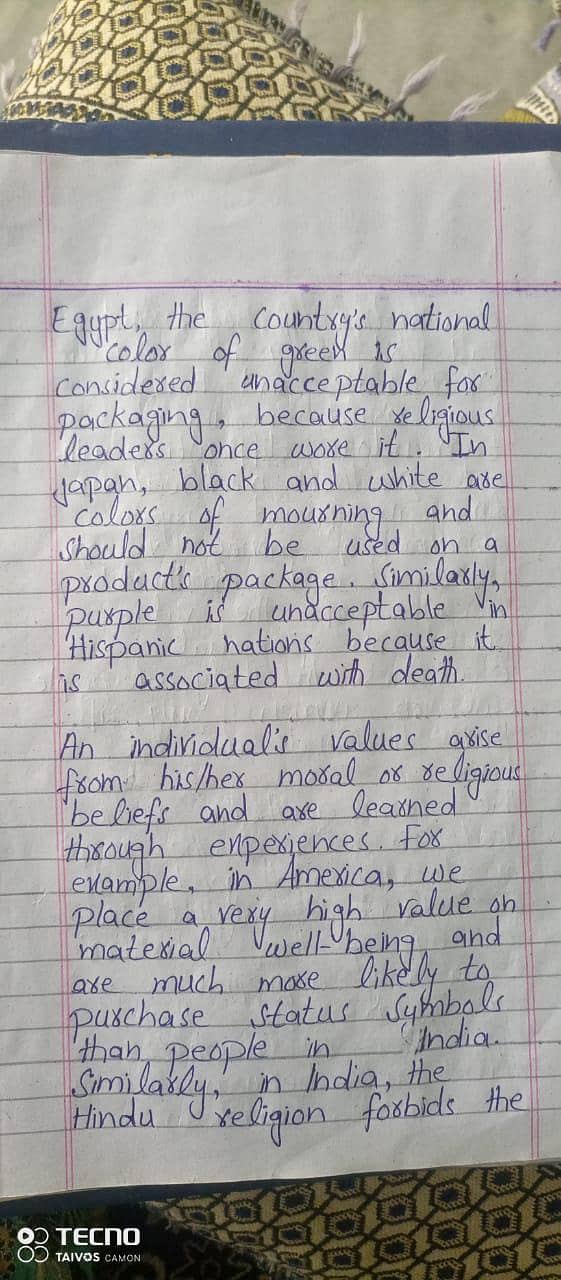 Egypt, the country's national
color of green is
considered unacceptable for
packaging, because religious
leaders once wore it. In
Japan, black and white are
colors of mourning and
should not be used on a
product's package. Similarly,
purple is unacceptable in
Hispanic nations because it
is associated with death.
An individual's values arise
from his/her moral or religious
beliefs and are learned
through experiences. For
example, in America, we
place a very high value on
material well-being and
are much more likely to
purchase status symbols
than people in India.
Similarly, in India, the
Hindu religion forbids the
TECNO
TAIVOS CAMON